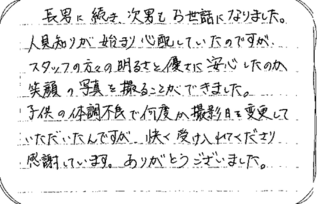 長男に続き、次男もお世話になりました。
人見知りが始まり心配していたのですが、
スタッフの方々の明るさと優さに安心したのか
笑顔の写真を撮ることができました。
子供の体調不良で何度か撮影日を変更して
いただいたんですが、快く受け入れてくださり
感謝しています。ありがとうございました。